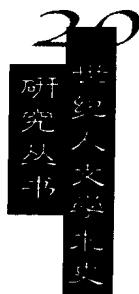 20
世纪人文學术史
研究丛书